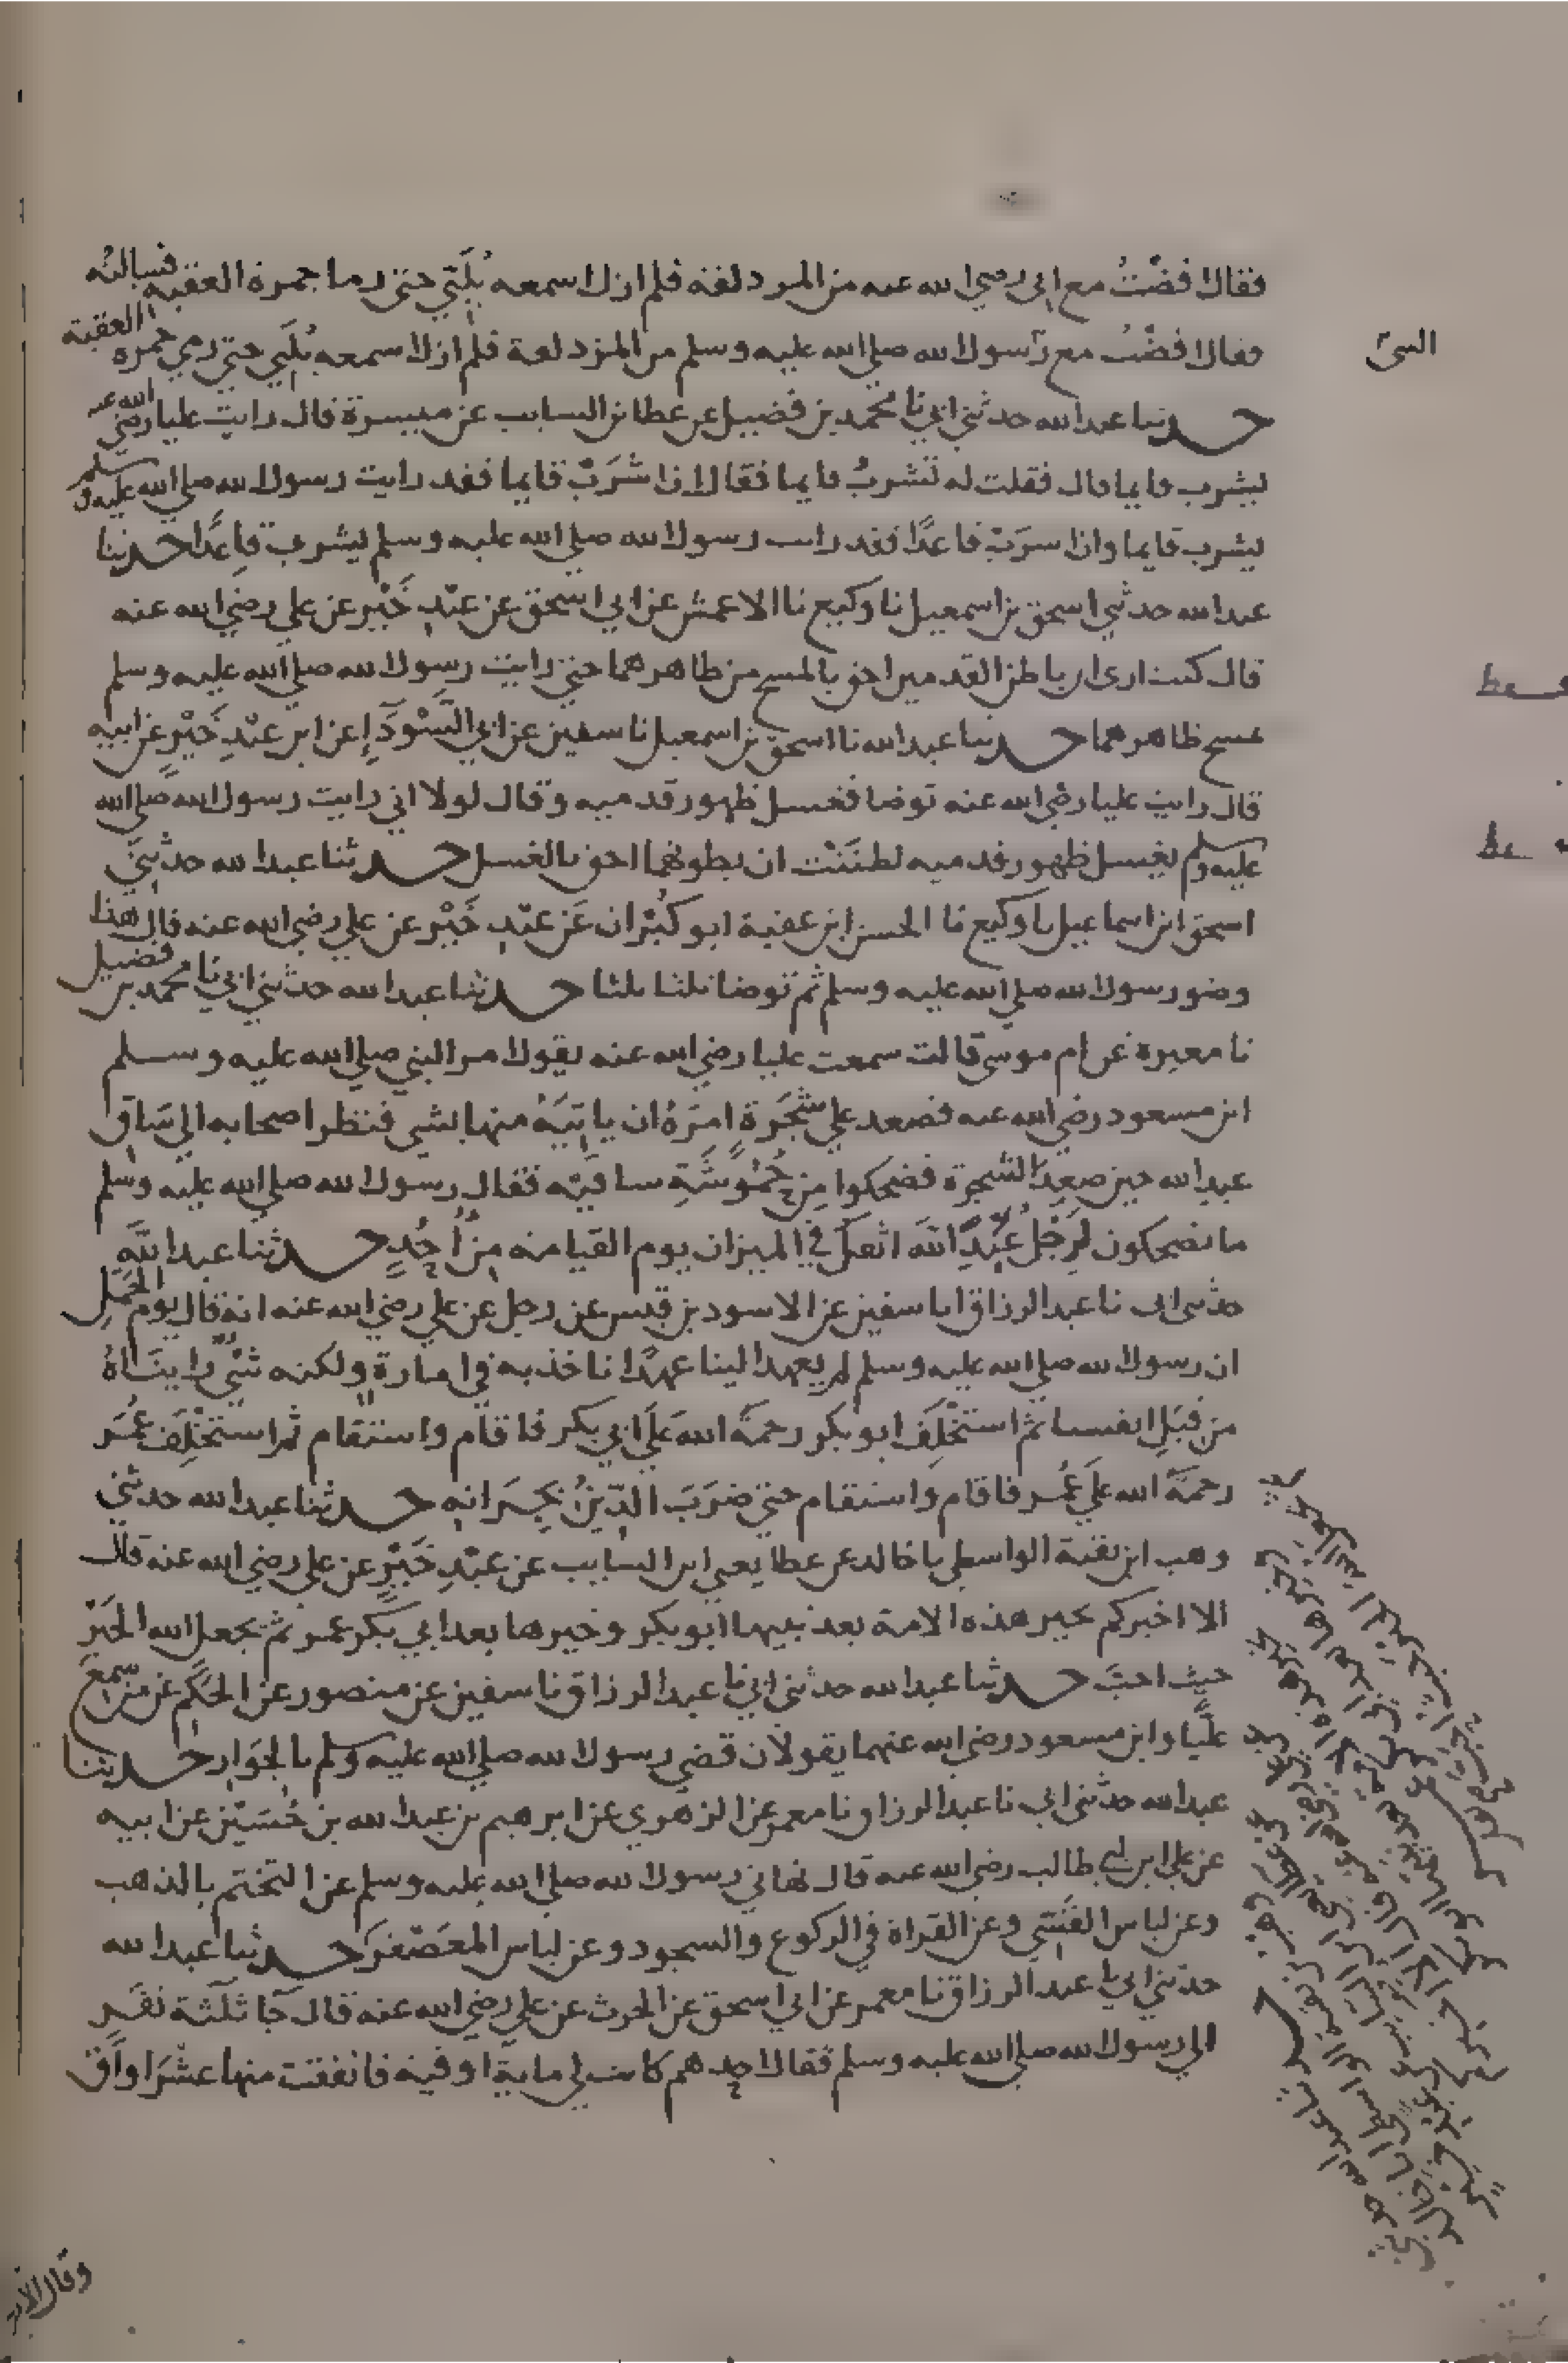 فقال افضت مع ابي رضي الله عنه من المزدلفه فلم ازل اسمعه يلبي حتى رما جمرة العقبه فسالته
فقال افضت مع رسول الله صلى الله عليه وسلم من المزدلفة فلم ازل اسمعه يلبي حتى رمى جمره العقبة
النبي
حدثنا عبد الله حدثني ابي نا محمد بن فضيل عن عطا بن السايب عن ميسرة قال رايت عليا رضي الله عنه
يشرب قايما قال فقلت له تشرب قايما فقال اذا شرب قايما فقد رايت رسول الله صلى الله عليه وسلم
يشرب قايما واذا شرب قاعدا فقد رايت رسول الله صلى الله عليه وسلم يشرب قاعدا حدثنا
عبد الله حدثني اسحق بن اسمعيل نا وكيع نا الاعمش عن ابي اسحق عن عبد خير عن علي رضي الله عنه
قال كنت ارى ان باطن القدمين احق بالمسح من ظاهرهما حتى رايت رسول الله صلى الله عليه وسلم
يمسح ظاهرهما حدثنا عبد الله نا اسحق بن اسمعيل نا سفين عن ابي السودآ عن ابن عبد خير عن ابيه
قال رايت عليا رضي الله عنه توضا فغسل ظهور قدميه وقال لولا اني رايت رسول الله صلى الله
عليه وسلم يغسل ظهور قدميه لظننت ان بطونهما احق بالغسل حدثنا عبد الله حدثني
اسحق ابن اسماعيل نا وكيع نا الحسن ابن عقبة ابو كبران عن عبد خير عن علي رضي الله عنه قال هذا
وضو رسول الله صلى الله عليه وسلم ثم توضا ثلثا ثلثا حدثنا عبد الله حدثني ابي نا محمد بن فضيل
نا مغيرة عن ام موسى قالت سمعت عليا رضي الله عنه يقول امر النبي صلى الله عليه وسلم
ابن مسعود رضي الله عنه فصعد على شجرة امره ان ياتيه منها بشي فنظر اصحابه الى ساق
عبد الله حين صعد الشجرة فضحكوا من حموشة ساقيه فقال رسول الله صلى الله عليه وسلم
ما تضحكون لرجل عبد الله اثقل في الميزان يوم القيامه من احد حدثنا عبد الله
حدثني ابي نا عبد الرزاق انا سفين عن الاسود بن قيس عن رجل عن علي رضي الله عنه انه قال يوم الجمل
ان رسول الله صلى الله عليه وسلم لم يعهد الينا عهدا ناخذ به في امارة ولكنه شي رايناه
من قبل انفسنا ثم استخلف ابو بكر رحمة الله على ابي بكر فاقام واستقام ثم استخلف عمر
رحمة الله على عمر فاقام واستقام حتى ضرب الدين بجرانه حدثنا عبد الله حدثني
وهب ابن بقية الواسطي نا خالد عن عطا يعني ابن السايب عن عبد خير عن علي رضي الله عنه قال
الا اخبركم بخير هذه الامة بعد نبيها ابو بكر وخيرها بعد ابي بكر عمر ثم يجعل الله الخير
حيث احب حدثنا عبد الله حدثني ابي نا عبد الرزاق نا سفين عن منصور عن الحكم عن من سمع
عليا وابن مسعود رضي الله عنهما يقولان قضى رسول الله صلى الله عليه وسلم بالجوار حدثنا
عبد الله حدثني ابي نا عبد الرزاق نا معمر عن الزهري عن ابرهيم بن عبد الله بن حسين عن ابيه
عن علي ابن ابي طالب رضي الله عنه قال نهاني رسول الله صلى الله عليه وسلم عن التختم بالذهب
وعن لباس القسي وعن القراة في الركوع والسجود وعن لباس المعصفر حدثنا عبد الله
حدثني ابي نا عبد الرزاق نا معمر عن ابي اسحق عن الحرث عن علي رضي الله عنه قال جآ ثلثة نفر
الى رسول الله صلى الله عليه وسلم فقال احدهم كانت لي ماية اوقية فانفقت منها عشر اواق
حدثنا عبد الله حدثني
وهب بن بقية الواسطي انا خالد
وقال الاخر